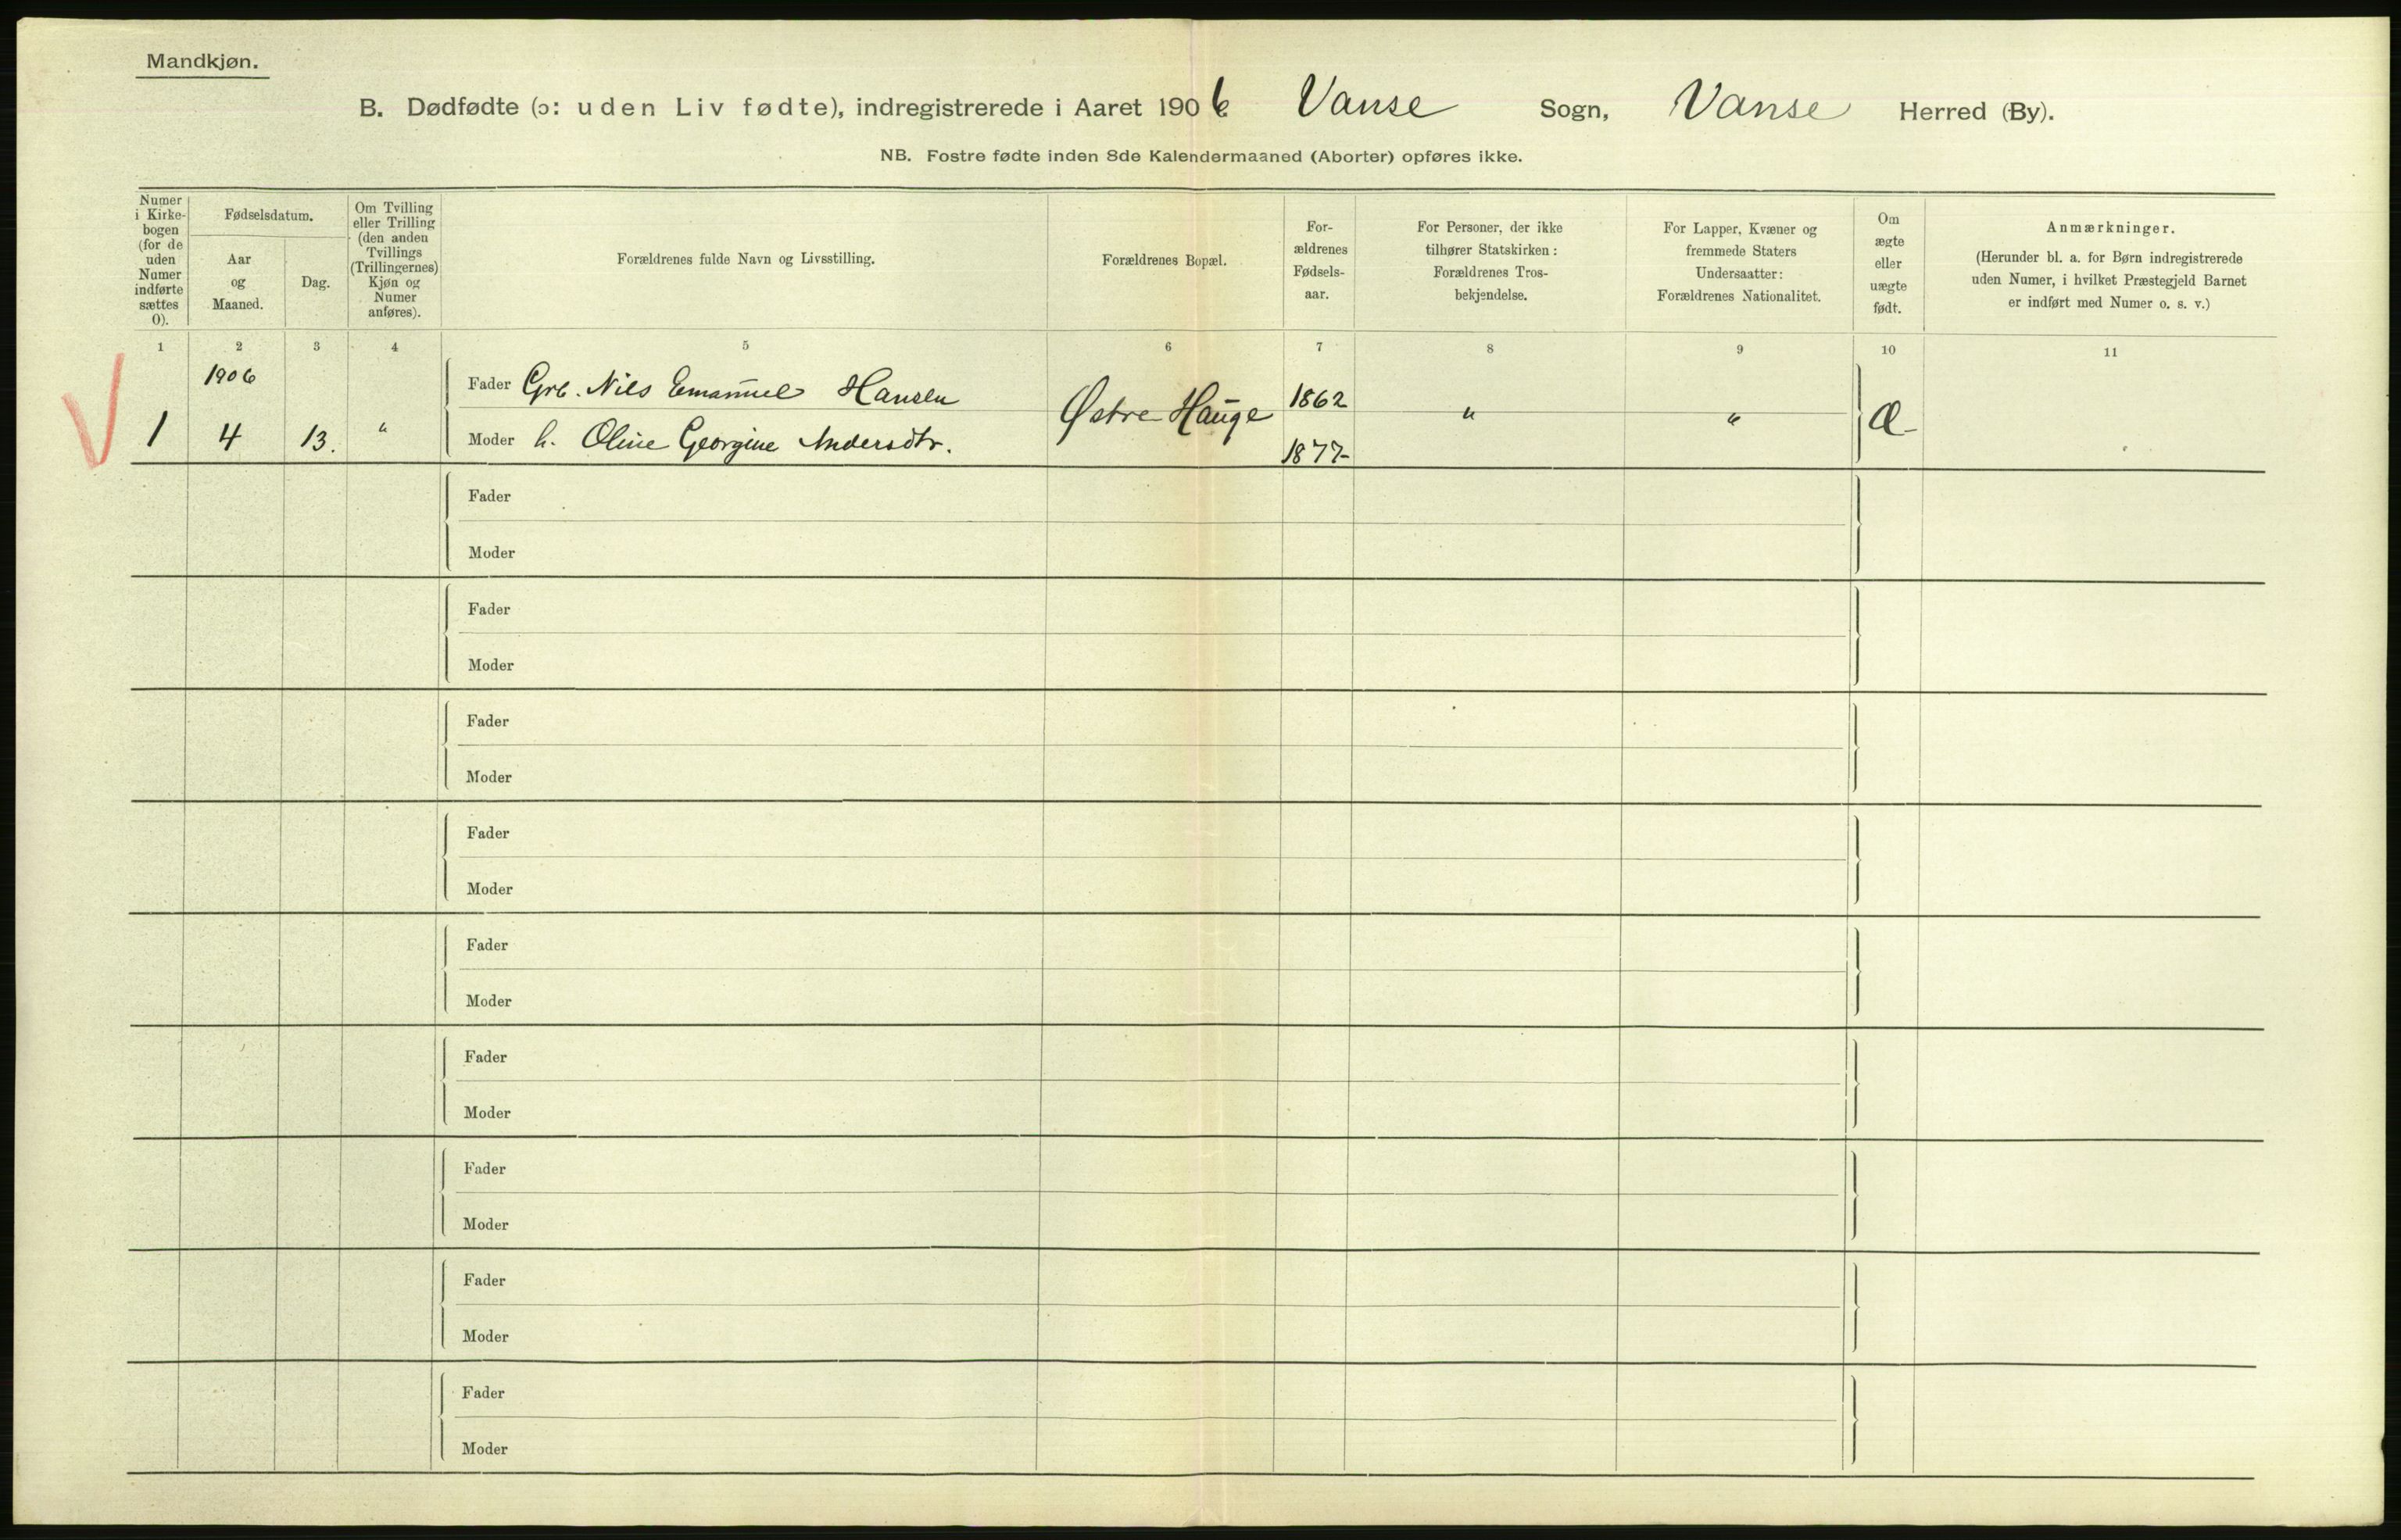 Mandkjøn.
B. Dødfødte (ɔ: uden Liv fødte), indregistrerede i Aaret 1906 Vanse Sogn, Vanse Herred (By).
NB. Fostre fødte inden 8de Kalendermaaned (Aborter) opføres ikke.
Numer
i Kirke-
bogen
(for de
uden
Numer
indførte
sættes
0).
Fødselsdatum.
Aar
og
Maaned.
Dag.
Om Tvilling
eller Trilling
(den anden
Tvillings
(Trillingernes)
Kjøn og
Numer
anføres).
Forældrenes fulde Navn og Livsstilling.
Forældrenes Bopæl.
For-
ældrenes
Fødsels-
aar.
For Personer, der ikke
tilhører Statskirken:
Forældrenes Tros-
bekjendelse.
For Lapper, Kvæner og
fremmede Staters
Undersaatter:
Forældrenes Nationalitet.
Om
ægte
eller
uægte
født.
Anmærkninger.
(Herunder bl. a. for Børn indregistrerede
uden Numer, i hvilket Præstegjeld Barnet
er indført med Numer o. s. v.)
1 2 3 4 5 6 7 8 9 10 11
1906
1 4 13. "
Fader Grb. Nils Emanuel Hansen
Moder h. Oline Georgine Andersdtr.
Østre Hauge
1862
1877
" " Æ
Fader
Moder
Fader
Moder
Fader
Moder
Fader
Moder
Fader
Moder
Fader
Moder
Fader
Moder
Fader
Moder
Fader
Moder